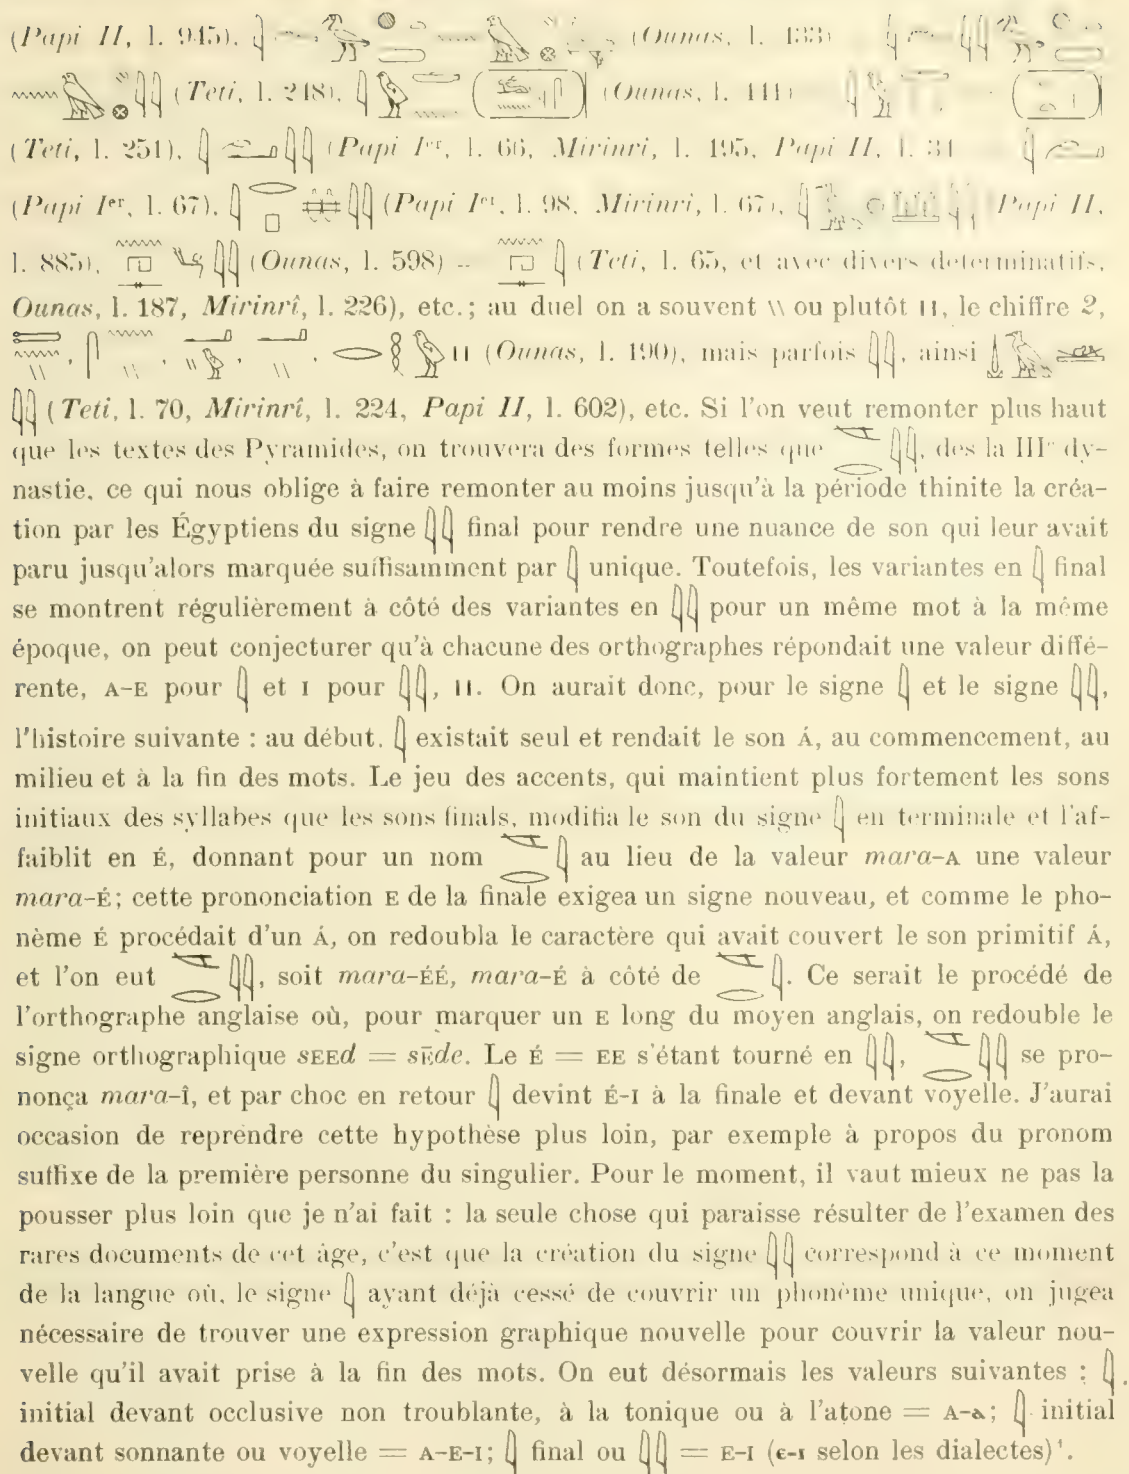 (Papi II, l. 945), 𓇋 (Ounas, l. 133) 𓇋
(Teti, l. 248), 𓇋 (Ounas, l. 141) 𓇋
(Teti, l. 251), 𓇋𓇋 (Papi Iᵉʳ, l. 66, Mirinri, l. 195, Papi II, l. 31 𓇋
(Papi Iᵉʳ, l. 67), 𓇋 𓇋𓇋 (Papi Iᵉʳ, l. 98, Mirinri, l. 67), 𓇋 Papi II,
l. 885), 𓇋𓇋 (Ounas, l. 598) — 𓇋 (Teti, l. 65, et avec divers déterminatifs,
Ounas, l. 187, Mirinrî, l. 226), etc.; au duel on a souvent \\ ou plutôt ıı, le chiffre 2,
(Ounas, l. 190), mais parfois 𓇋𓇋, ainsi
𓇋𓇋 (Teti, l. 70, Mirinrî, l. 224, Papi II, l. 602), etc. Si l'on veut remonter plus haut
que les textes des Pyramides, on trouvera des formes telles que 𓌻𓂋𓇋𓇋, dès la IIIᵉ dy-
nastie, ce qui nous oblige à faire remonter au moins jusqu'à la période thinite la créa-
tion par les Égyptiens du signe 𓇋𓇋 final pour rendre une nuance de son qui leur avait
paru jusqu'alors marquée suffisamment par 𓇋 unique. Toutefois, les variantes en 𓇋 final
se montrent régulièrement à côté des variantes en 𓇋𓇋 pour un même mot à la même
époque, on peut conjecturer qu'à chacune des orthographes répondait une valeur diffé-
rente, A-E pour 𓇋 et I pour 𓇋𓇋, ıı. On aurait donc, pour le signe 𓇋 et le signe 𓇋𓇋,
l'histoire suivante : au début, 𓇋 existait seul et rendait le son Á, au commencement, au
milieu et à la fin des mots. Le jeu des accents, qui maintient plus fortement les sons
initiaux des syllabes que les sons finals, modifia le son du signe 𓇋 en terminale et l'af-
faiblit en É, donnant pour un nom 𓌻𓂋𓇋 au lieu de la valeur mara-A une valeur
mara-É; cette prononciation E de la finale exigea un signe nouveau, et comme le pho-
nème É procédait d'un Á, on redoubla le caractère qui avait couvert le son primitif Á,
et l'on eut 𓌻𓂋𓇋𓇋, soit mara-ÉÉ, mara-É à côté de 𓌻𓂋𓇋. Ce serait le procédé de
l'orthographe anglaise où, pour marquer un E long du moyen anglais, on redouble le
signe orthographique sEEd = sĒde. Le É = EE s'étant tourné en 𓇋𓇋, 𓌻𓂋𓇋𓇋 se pro-
nonça mara-î, et par choc en retour 𓇋 devint É-I à la finale et devant voyelle. J'aurai
occasion de reprendre cette hypothèse plus loin, par exemple à propos du pronom
suffixe de la première personne du singulier. Pour le moment, il vaut mieux ne pas la
pousser plus loin que je n'ai fait : la seule chose qui paraisse résulter de l'examen des
rares documents de cet âge, c'est que la création du signe 𓇋𓇋 correspond à ce moment
de la langue où, le signe 𓇋 ayant déjà cessé de couvrir un phonème unique, on jugea
nécessaire de trouver une expression graphique nouvelle pour couvrir la valeur nou-
velle qu'il avait prise à la fin des mots. On eut désormais les valeurs suivantes : 𓇋,
initial devant occlusive non troublante, à la tonique ou à l'atone = A-ⲁ; 𓇋 initial
devant sonnante ou voyelle = A-E-I; 𓇋 final ou 𓇋𓇋 = E-I (ⲉ-ⲓ selon les dialectes)¹.